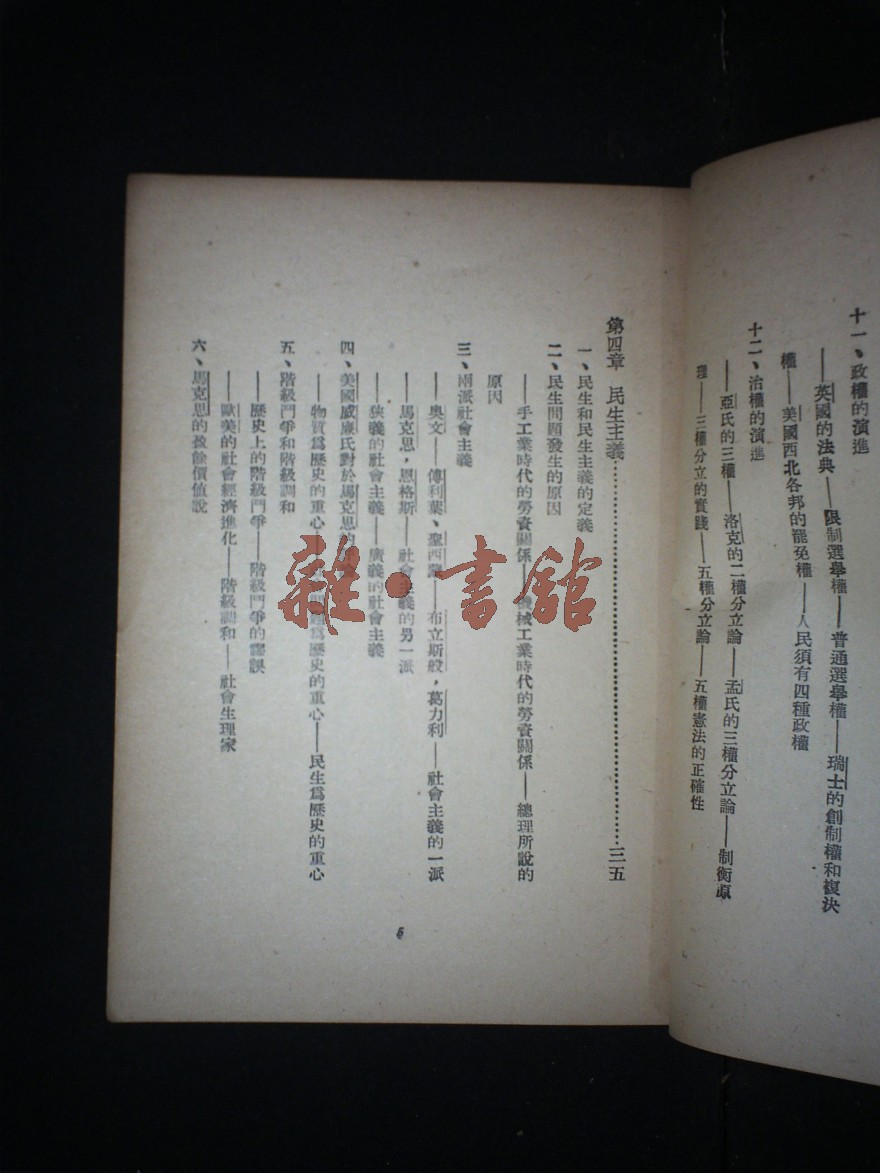 十一、政權的演進
——英國的法典——限制選舉權——普通選舉權——瑞士的創制權和複決
權——美國西北各邦的罷免權——人民須有四種政權
十二、治權的演進
——亞氏的三權——洛克的二權分立論——孟氏的三權分立論——制衡原
理——三權分立的實踐——五權分立論——五權憲法的正確性
第四章 民生主義……三五
一、民生和民生主義的定義
二、民生問題發生的原因
——手工業時代的勞資關係——機械工業時代的勞資關係——總理所說的
原因
三、兩派社會主義
——奧文——傅利葉、聖西蒙——布立斯般,葛力利——社會主義的一派
——馬克思,恩格斯——社會主義的另一派
——狹義的社會主義——廣義的社會主義
四、美國威廉氏對於馬克思的
——物質爲歷史的重心——爲歷史的重心——民生爲歷史的重心
五、階級鬥爭和階級調和
——歷史上的階級鬥爭——階級鬥爭的謬誤
——歐美的社會經濟進化——階級調和——社會生理家
六、馬克思的盈餘價值說
5
雜·書館